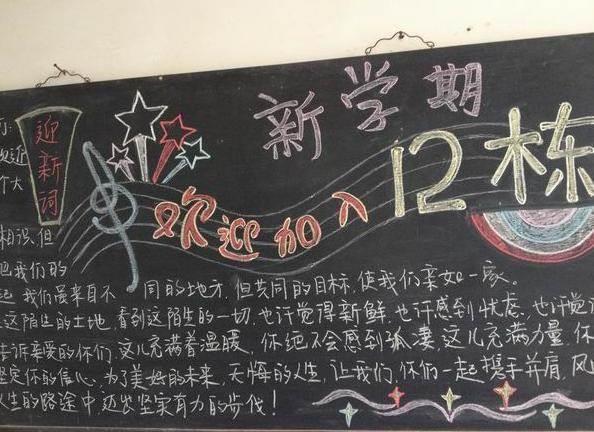 新学期
12栋
欢迎加入
迎新词
相识,但
把我们的
起 我们虽来自不同的地方,但共同的目标,使我们亲如一家。
这陌生的土地,看到这陌生的一切,也许觉得新鲜,也许感到忧虑,也许觉
告诉亲爱的你们,这儿充满着温暖,你绝不会感到孤凄,这儿充满力量,你
坚定你的信心,为了美好的未来,无悔的人生,让我们、你们一起携手并肩,风
人生的路途中,迈出坚实有力的步伐!